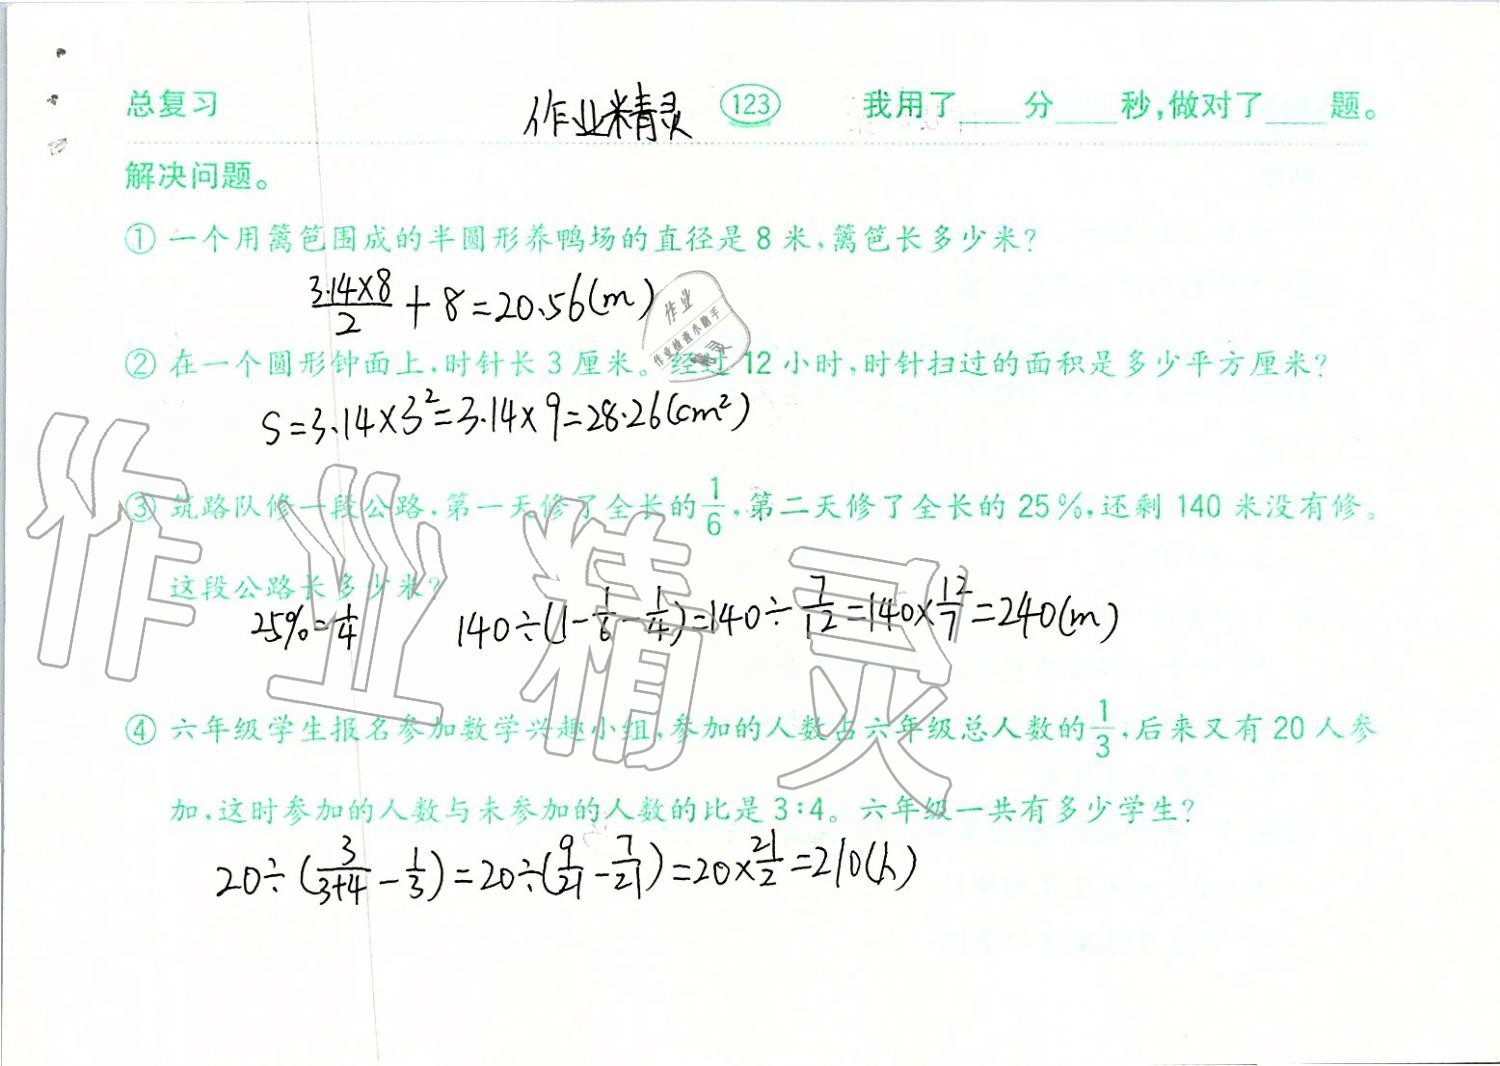 总复习 作业精灵 123 我用了____分____秒,做对了____题。
解决问题。
① 一个用篱笆围成的半圆形养鸭场的直径是8米,篱笆长多少米?
3.14×8/2 + 8 = 20.56(m)
作业
作业检查小助手
精灵
② 在一个圆形钟面上,时针长3厘米。经过12小时,时针扫过的面积是多少平方厘米?
S=3.14×3²=3.14×9=28.26(cm²)
③ 筑路队修一段公路,第一天修了全长的1/6,第二天修了全长的25%,还剩140米没有修。
这段公路长多少米?
25%=1/4 140÷(1-1/6-1/4)=140÷7/12=140×12/7=240(m)
作业精灵
④ 六年级学生报名参加数学兴趣小组,参加的人数占六年级总人数的1/3,后来又有20人参
加,这时参加的人数与未参加的人数的比是3:4。六年级一共有多少学生?
20÷(3/3+4-1/3)=20÷(9/21-7/21)=20×21/2=210(人)